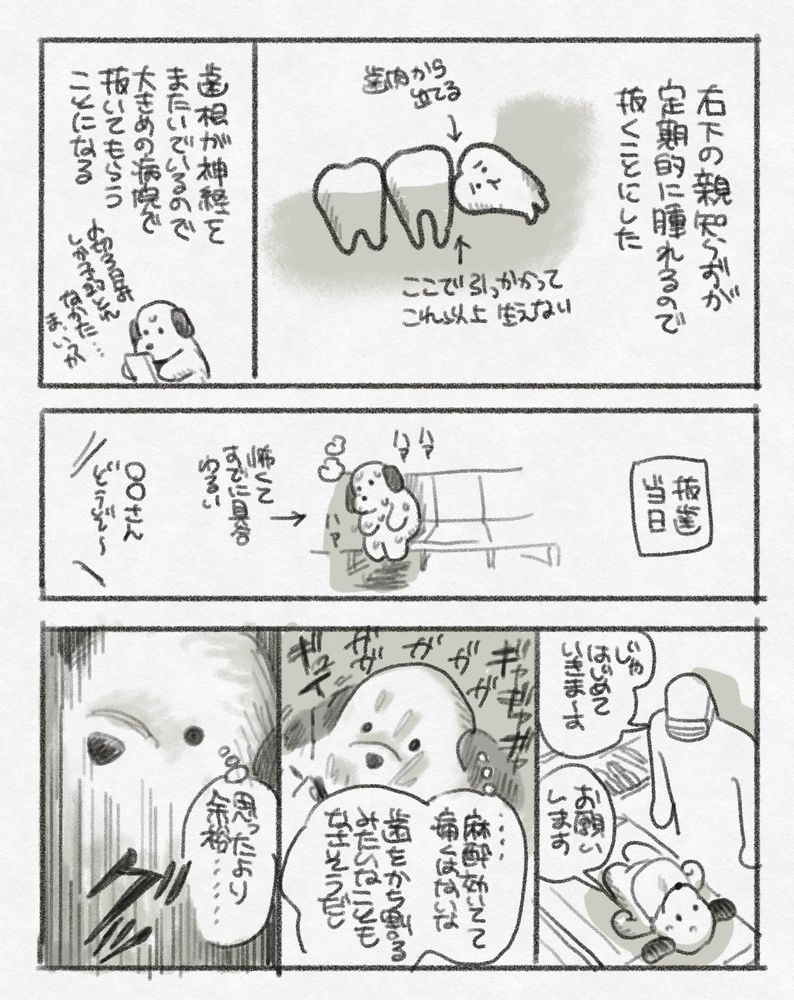 右下の親知らずが
定期的に腫れるので
抜くことにした
歯肉から
出てる
ここで引っかかって
これ以上生えない
歯根が神経を
またいでいるので
大きめの病院で
抜いてもらう
ことになる
しかも
なかった…
まいっか
抜歯
当日
ハァ
ハァ
ハァ
怖くて
すでに具合
わるい
○○さん
どうぞ〜
じゃ
はじめて
いきまーす
お願い
します
ギャギャギャ
ガガ
ガガ
ギュイ
……麻酔効いてて
痛くはないな
歯をかち割る
みたいなことも
なさそうだし
思ったより
余裕……
グッ